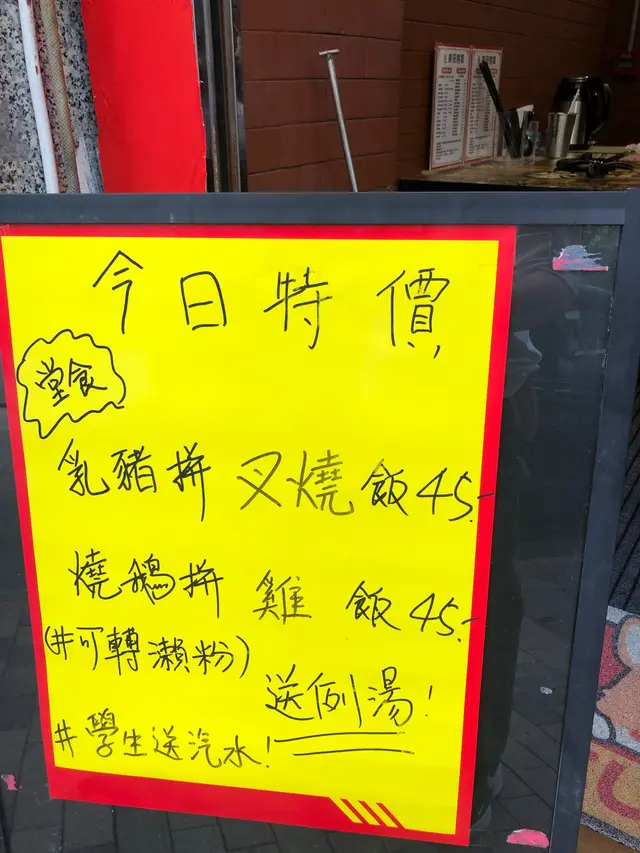 今日特價
堂食
乳豬拼叉燒飯45.-
燒鵝拼雞飯45.-
(#可轉瀨粉)
送例湯!
#學生送汽水!